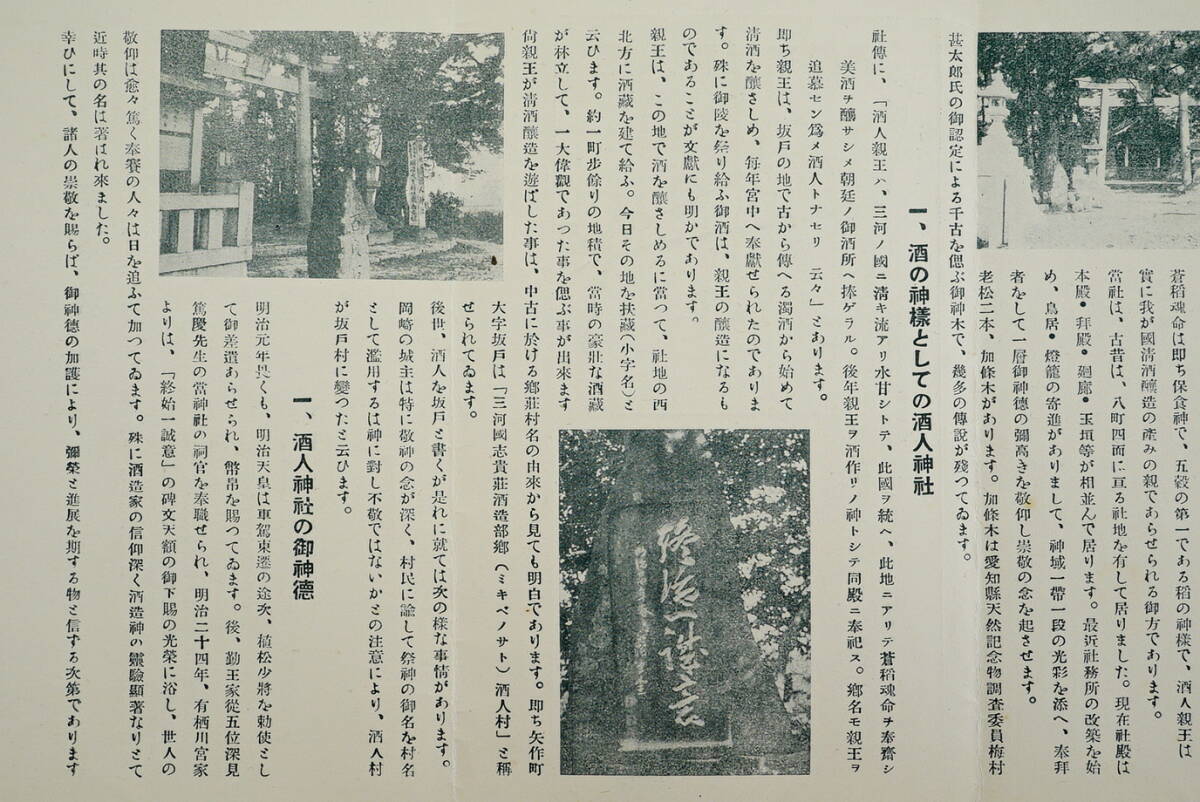 蒼稻魂命は即ち保食神で、五穀の第一である稻の神樣で、酒人親王は
實に我が國清酒釀造の產みの親であらせられる御方であります。
當社は、古昔は、八町四面に亘る社地を有して居りました。現在社殿は
本殿・拜殿・廻廊・玉垣等が相並んで居ります。最近社務所の改築を始
め、鳥居・燈籠の寄進がありまして、神域一帶一段の光彩を添へ、奉拜
者をして一層御神德の彌高きを敬仰し崇敬の念を起させます。
老松二本、加條木があります。加條木は愛知縣天然記念物調査委員梅村
甚太郎氏の御認定による千古を偲ぶ御神木で、幾多の傳說が殘つてゐます。
一、酒の神樣としての酒人神社
社傳に、「酒人親王ハ、三河ノ國ニ清キ流アリ水甘シトテ、此國ヲ統ヘ、此地ニアリテ蒼稻魂命ヲ奉齋シ
美酒ヲ釀サシメ朝廷ノ御酒所ヘ捧ゲラル。後年親王ヲ酒作リノ神トシテ同殿ニ奉祀ス。鄉名モ親王ヲ
追慕セン爲メ酒人トナセリ 云々」とあります。
即ち親王は、坂戸の地で古から傳へる濁酒から始めて
清酒を釀さしめ、每年宮中へ奉獻せられたのでありま
す。殊に御陵を祭り給ふ御酒は、親王の釀造になるも
のであることが文獻にも明かであります。
親王は、この地で酒を釀さしめるに當つて、社地の西
北方に酒藏を建て給ふ。今日その地を扶藏(小字名)と
云ひます。約一町步餘りの地積で、當時の豪壯な酒藏
が林立して、一大偉觀であつた事を偲ぶ事が出來ます
尙親王が清酒釀造を遊ばした事は、中古に於ける鄉莊村名の由來から見ても明白であります。即ち矢作町
大字坂戸は「三河國志貴莊酒造部鄉(ミキベノサト)酒人村」と稱
せられてゐます。
後世、酒人を坂戸と書くが是れに就ては次の樣な事情があります。
岡崎の城主は特に敬神の念が深く、村民に諭して祭神の御名を村名
として濫用するは神に對し不敬ではないかとの注意により、酒人村
が坂戸村に變つたと云ひます。
一、酒人神社の御神德
明治元年畏くも、明治天皇は車駕東遷の途次、植松少將を勅使とし
て御差遣あらせられ、幣帛を賜つてゐます。後、勤王家從五位深見
篤慶先生の當神社の祠官を奉職せられ、明治二十四年、有栖川宮家
よりは、「終始一誠意」の碑文天額の御下賜の光榮に浴し、世人の
敬仰は愈々篤く奉賽の人々は日を追ふて加つてゐます。殊に酒造家の信仰深く酒造神の靈驗顯著なりとて
近時其の名は著はれ來ました。
幸ひにして、諸人の崇敬を賜らば、御神德の加護により、彌榮と進展を期する物と信ずる次第であります
終始一誠意